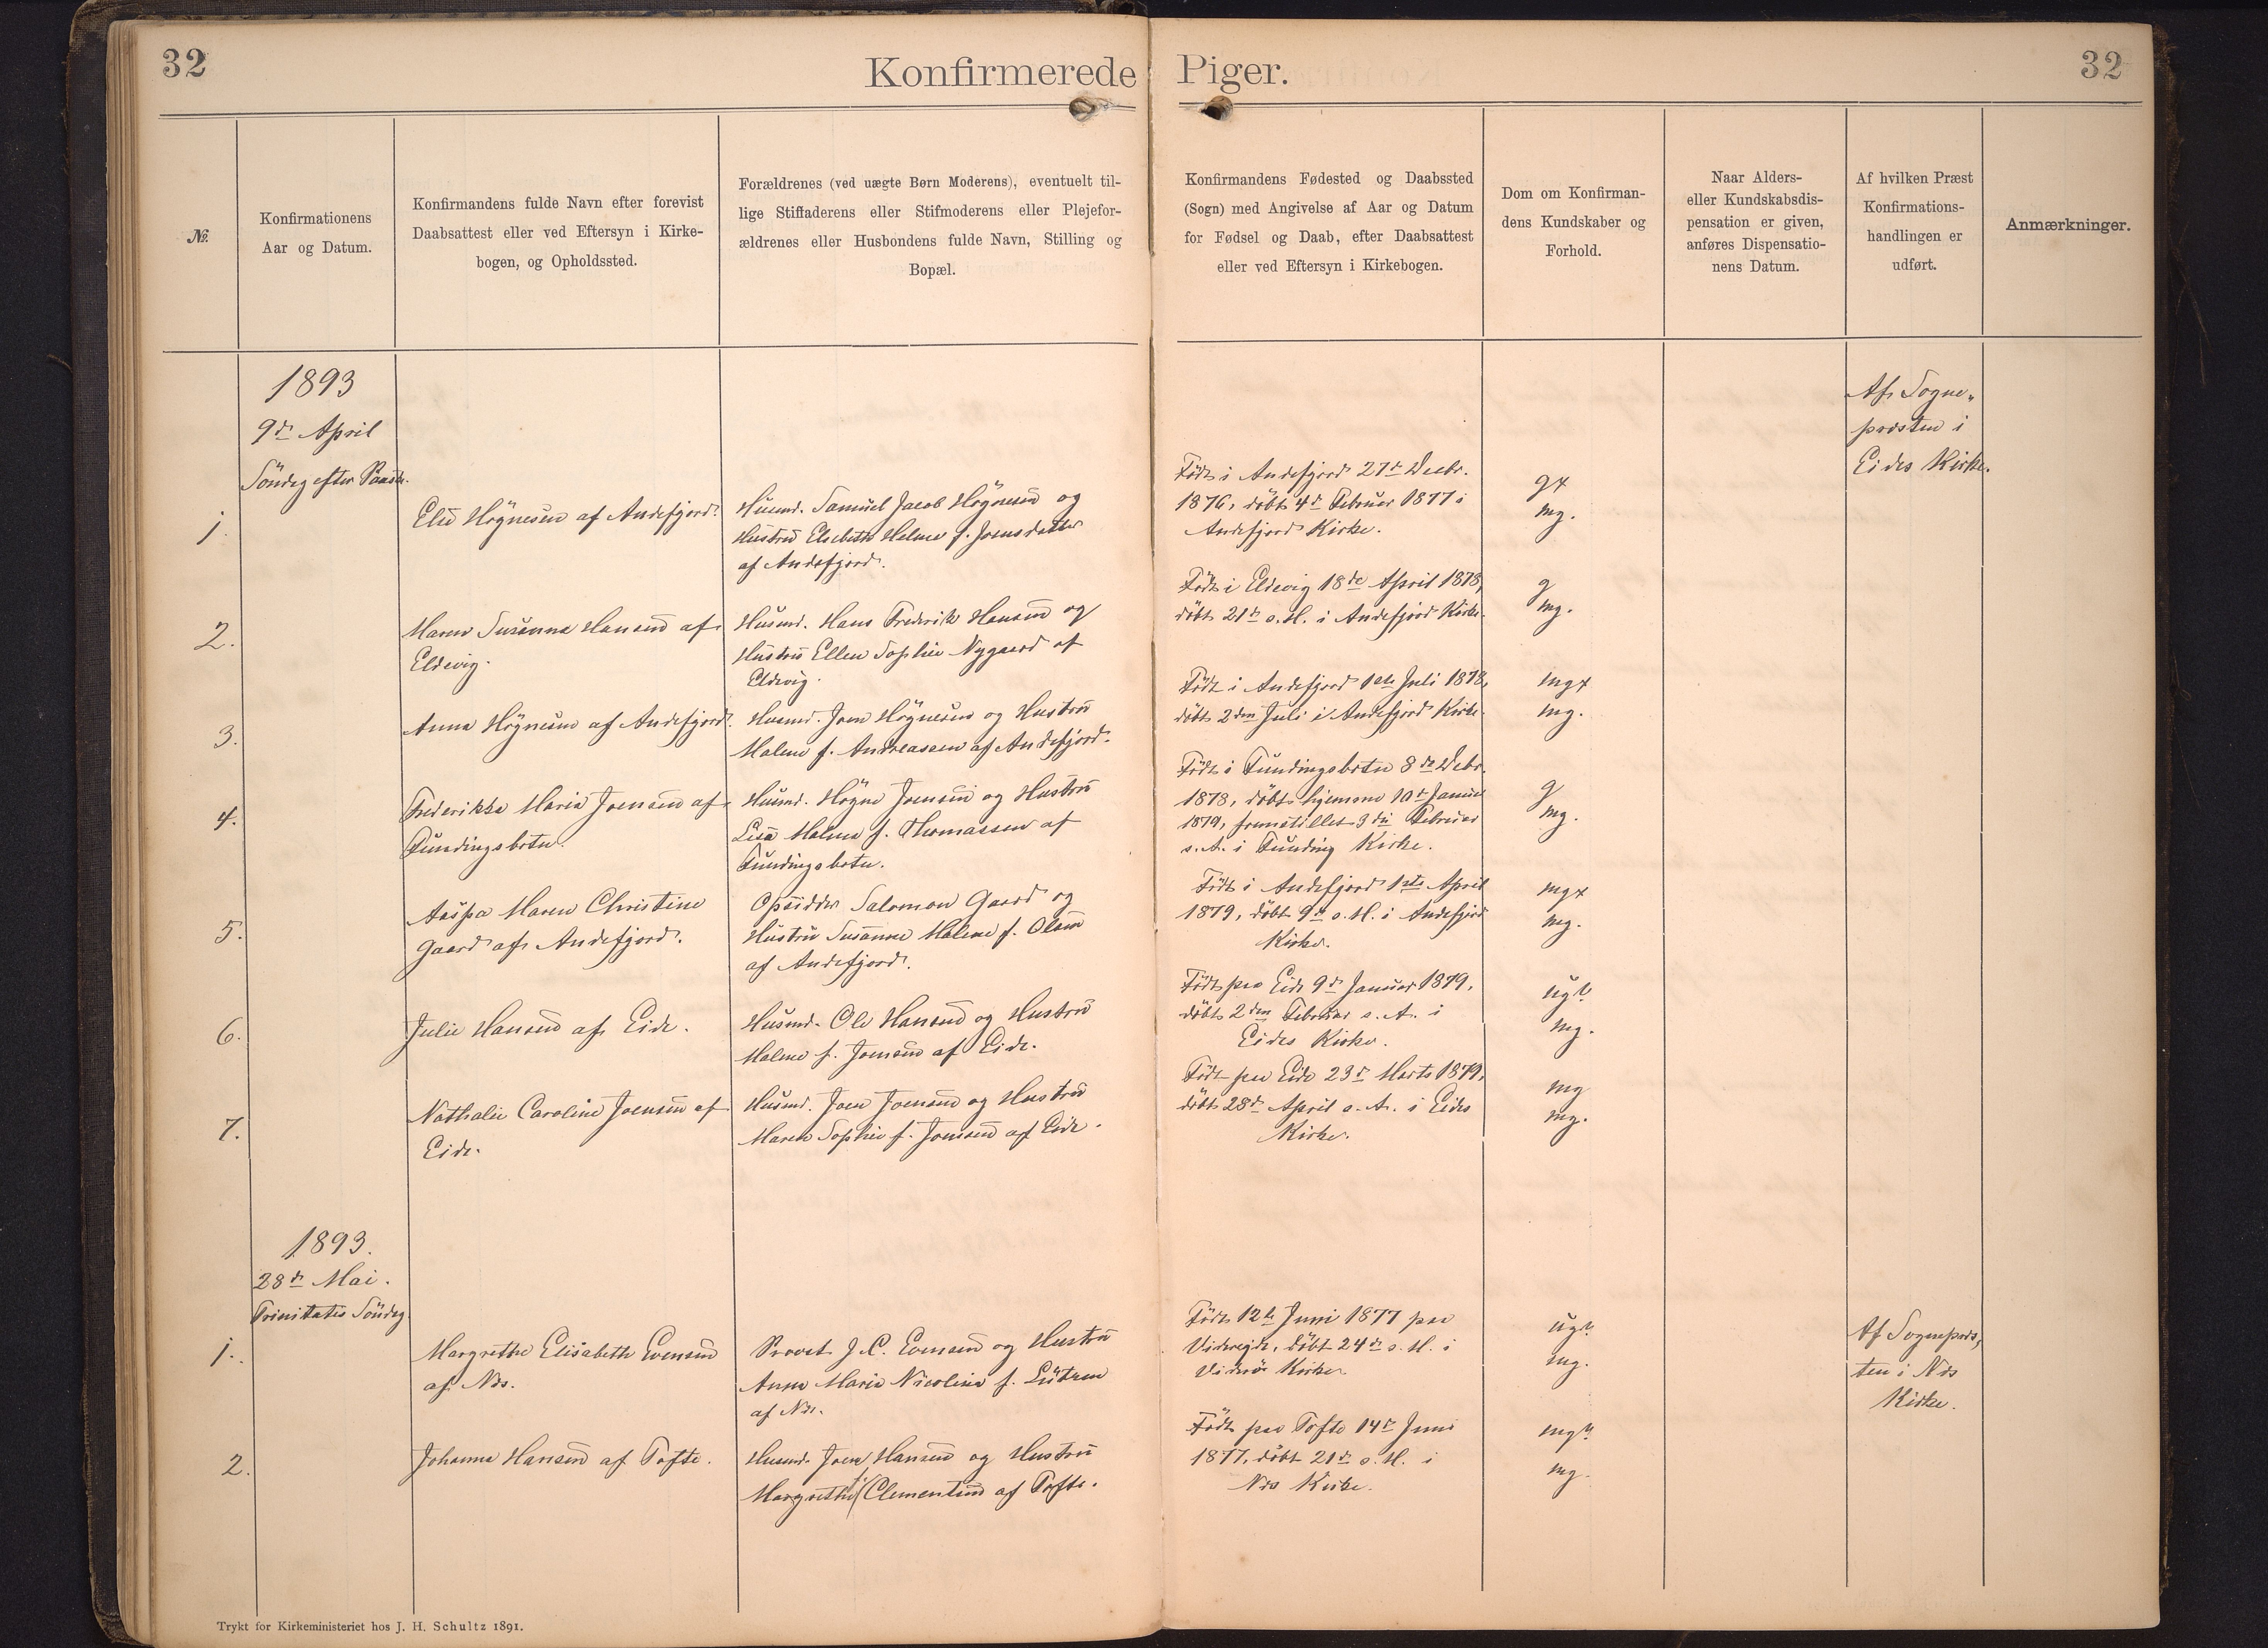 32
Konfirmerede Piger.
32
№.
Konfirmationens
Aar og Datum.
Konfirmandens fulde Navn efter forevist
Daabsattest eller ved Eftersyn i Kirke-
bogen, og Opholdssted.
Forældrenes (ved uægte Børn Moderens), eventuelt til-
lige Stiffaderens eller Stifmoderens eller Plejefor-
ældrenes eller Husbondens fulde Navn, Stilling og
Bopæl.
Konfirmandens Fødested og Daabssted
(Sogn) med Angivelse af Aar og Datum
for Fødsel og Daab, efter Daabsattest
eller ved Eftersyn i Kirkebogen.
Dom om Konfirman-
dens Kundskaber og
Forhold.
Naar Alders-
eller Kundskabsdis-
pensation er given,
anføres Dispensatio-
nens Datum.
Af hvilken Præst
Konfirmations-
handlingen er
udført.
Anmærkninger.
1893
9de April
Söndag efter Paaske.
Af Sogne„
præsten i
Eides Kirke.
1.
Else Högnesen af Andefjord.
Husmd. Samuel Jacob Högnesen og
Hustru Elsebeth Helene f. Joensdatter
af Andefjord.
Födt i Andefjord 27de Decbr.
1876, döbt 4de Februar 1877 i
Andefjord Kirke.
g+
mg.
2.
Maren Susanna Hansen af
Eldevig.
Husmd. Hans Frederik Hansen og
Hustru Ellen Sophie Nygaard af
Eldevig.
Födt i Eldevig 18de April 1878,
döbt 21de s. M. i Andefjord Kirke.
g
mg.
3.
Anna Högnesen af Andefjord.
Husmd. Joen Högnesen og Hustru
Malene f. Andreassen af Andefjord.
Födt i Andefjord 1ste Juli 1878,
döbt 2den Juli i Andefjord Kirke.
mg+
mg.
4.
Frederikke Maria Joensen af
Fundingsbotn.
Husmd. Högne Joensen og Hustru
Lisa Malene f. Thomassen af
Fundingsbotn.
Födt i Fundingsbotn 8de Debr.
1878, döbt hjemme 10de Januar
1879, fremstillet 3die Februar
s. A. i Funding Kirke.
g
mg.
5.
Maren Christine
Gaard af Andefjord.
Opsidder Salomon Gaard og
Hustru Susanne Malene f. Olsen
af Andefjord.
Födt i Andefjord 1ste April
1879, döbt 9de s. M. i Andefjord
Kirke.
mg+
mg.
6.
Julie Hansen af Eide.
Husmd. Ole Hansen og Hustru
Malene f. Joensen af Eide.
Födt paa Eide 9de Januar 1879,
döbt 2den Februar s. A. i
Eides Kirke.
mg.
7.
Nathalie Caroline Joensen af
Eide.
Husmd. Joen Joensen og Hustru
Maren Sophie f. Joensen af Eide.
Födt paa Eide 23de Marts 1879,
döbt 28de April s. A. i Eides
Kirke.
mg
mg.
1893.
28de Mai.
Trinitatis Söndag
1.
Margrethe Elisabeth Evensen
af Næs.
Provst J. C. Evensen og Hustru
Anna Maria Nicolina f. Lützen
af Næs.
Födt 12te Juni 1877 paa
Videreide, döbt 24de s. M. i
Viderö Kirke.
mg.
Af Sognepræs„
ten i Næs
Kirke.
2.
Johanna Hansen af Tofte.
Husmd. Joen Hansen og Hustru
Margrethe f. Clementsen af Tofte.
Födt paa Tofte 14de Juni
1877, döbt 21de s. M. i
Næs Kirke.
mg.
Trykt for Kirkeministeriet hos J. H. Schultz 1891.